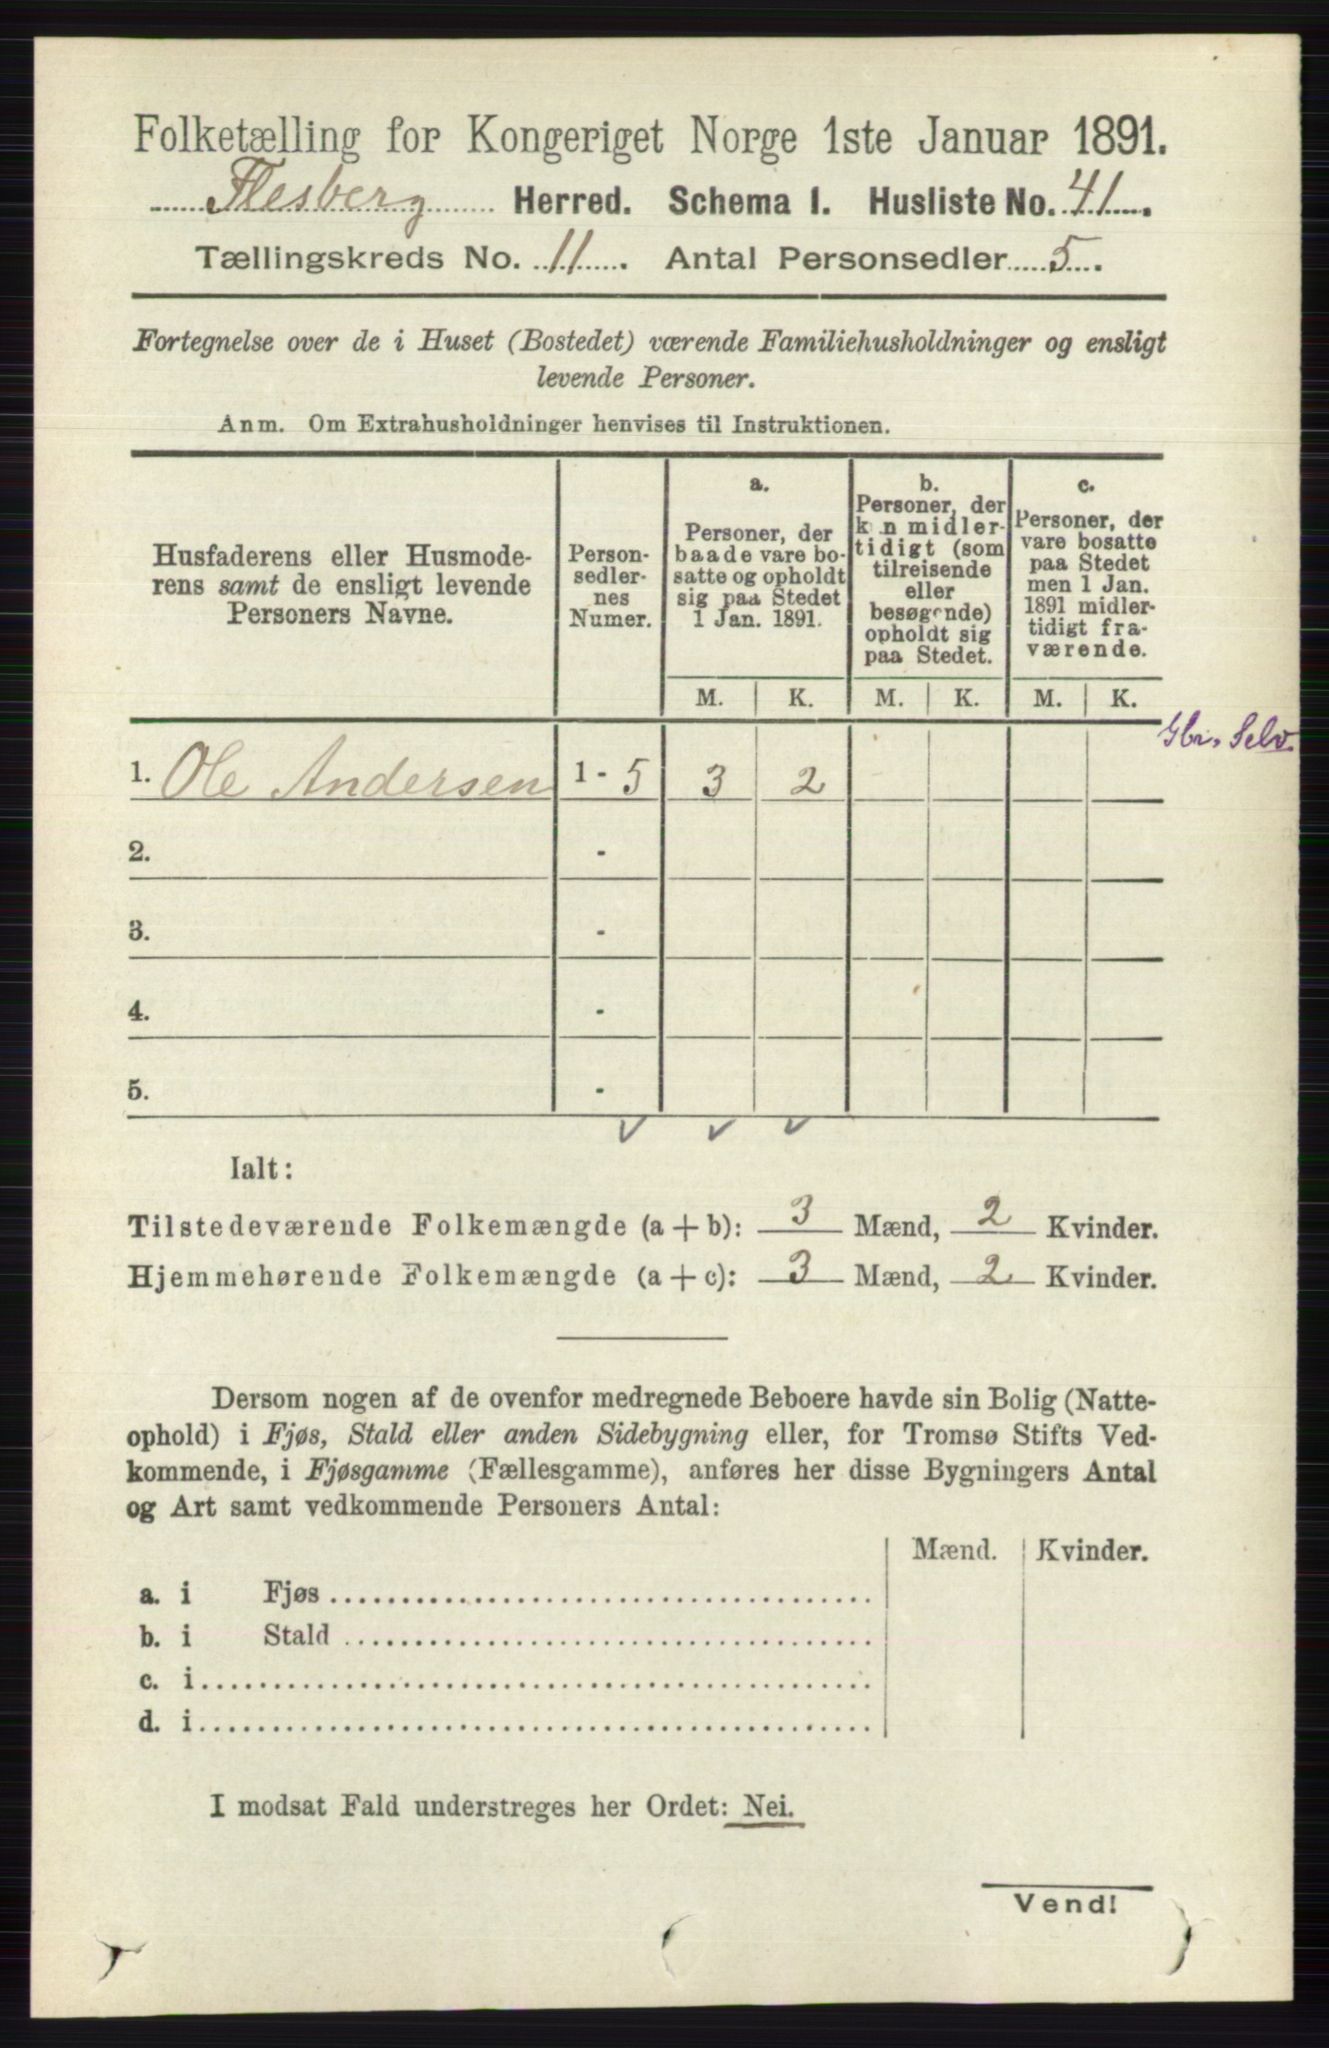 Folketælling for Kongeriget Norge 1ste Januar 1891.
Flesberg Herred. Schema 1. Husliste No. 41.
Tællingskreds No. 11. Antal Personsedler 5.
Fortegnelse over de i Huset (Bostedet) værende Familiehusholdninger og ensligt
levende Personer.
Anm. Om Extrahusholdninger henvises til Instruktionen.
Husfaderens eller Husmode-
rens samt de ensligt levende
Personers Navne.
Person-
sedler-
nes
Numer.
a.
Personer, der
baade vare bo-
satte og opholdt
sig paa Stedet
1 Jan. 1891.
b.
Personer, der
kun midler-
tidigt (som
tilreisende
eller
besøgende)
opholdt sig
paa Stedet.
c.
Personer, der
vare bosatte
paa Stedet
men 1 Jan.
1891 midler-
tidigt fra-
værende.
M. K. M. K. M. K.
Gbr. Selv.
1. Ole Andersen 1 - 5 3 2
2. -
3. -
4. -
5. -
Ialt:
Tilstedeværende Folkemængde (a + b): 3 Mænd, 2 Kvinder.
Hjemmehørende Folkemængde (a + c): 3 Mænd, 2 Kvinder.
Dersom nogen af de ovenfor medregnede Beboere havde sin Bolig (Natte-
ophold) i Fjøs, Stald eller anden Sidebygning eller, for Tromsø Stifts Ved-
kommende, i Fjøsgamme (Fællesgamme), anføres her disse Bygningers Antal
og Art samt vedkommende Personers Antal:
Mænd. Kvinder.
a. i Fjøs
b. i Stald
c. i
d. i
I modsat Fald understreges her Ordet: Nei.
Vend!